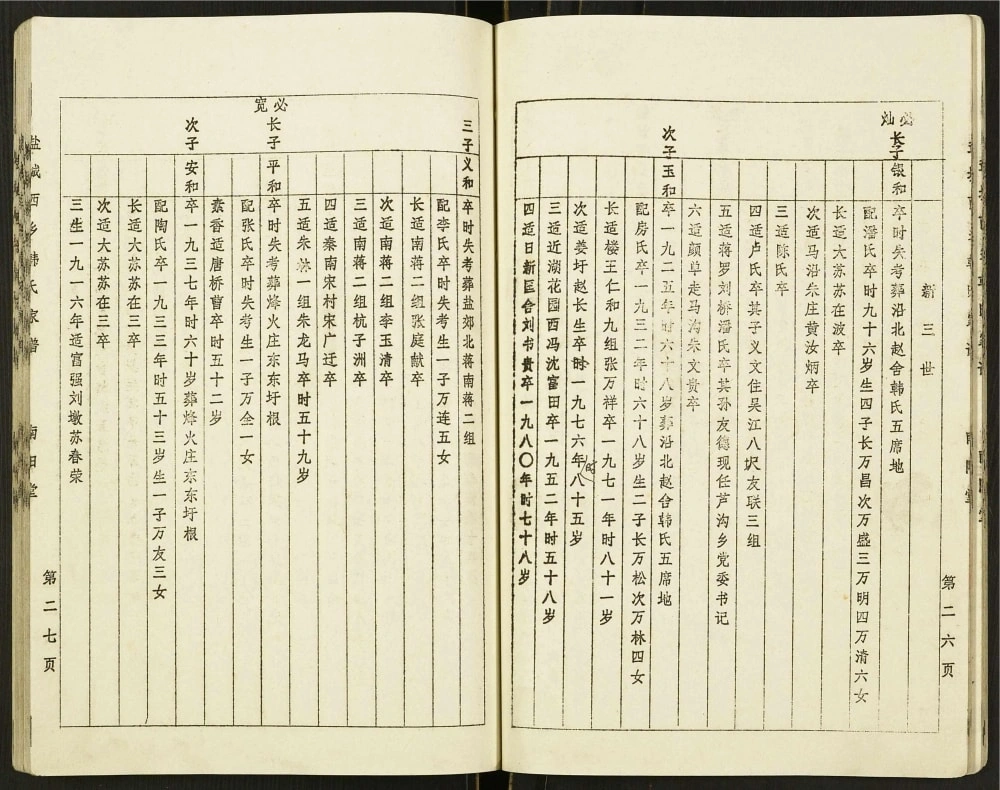 新三世
必灿
长子
银和
卒时失考葬沿北赵舍韩氏五席地
配潘氏卒时九十六岁生四子长万昌次万盛三万明四万清六女
长适大苏苏在波卒
次适马沿朱庄黄汝炳卒
三适陈氏卒
四适卢氏卒其子义文住吴江八坼友联三组
五适蒋罗刘桥潘氏卒其孙友德现任芦沟乡党委书记
六适颠草走马沟朱文贵卒
次子
玉和
卒一九二五年时六十八岁葬沿北赵舍韩氏五席地
配房氏卒一九三二年时六十八岁生二子长万松次万林四女
长适楼王仁和九组张万祥卒一九七一年时八十一岁
次适娄圩赵长生卒时一九七六年八十五岁
三适近湖花园西冯沈富田卒一九五二年时五十八岁
四适日新区合刘书贵卒一九八〇年时七十八岁
第二六页
三子
义和
卒时失考葬盐郊北蒋南蒋二组
配李氏卒时失考生一子万连五女
长适南蒋二组张庭献卒
次适南蒋二组李玉清卒
三适南蒋二组杭子洲卒
四适秦南宋村宋广迁卒
五适朱林一组朱龙马卒时五十九岁
必宽
长子
平和
卒时失考葬烽火庄东东圩根
配张氏卒时失考生一子万全一女
素香适唐桥曹卒时五十二岁
次子
安和
卒一九三七年时六十岁葬烽火庄东东圩根
配陶氏卒一九三三年时五十三岁生一子万友三女
长适大苏苏在三卒
次适大苏苏在三卒
三生一九一六年适富强刘墩苏春荣
盐城西乡韩氏家谱
南阳堂
第二七页